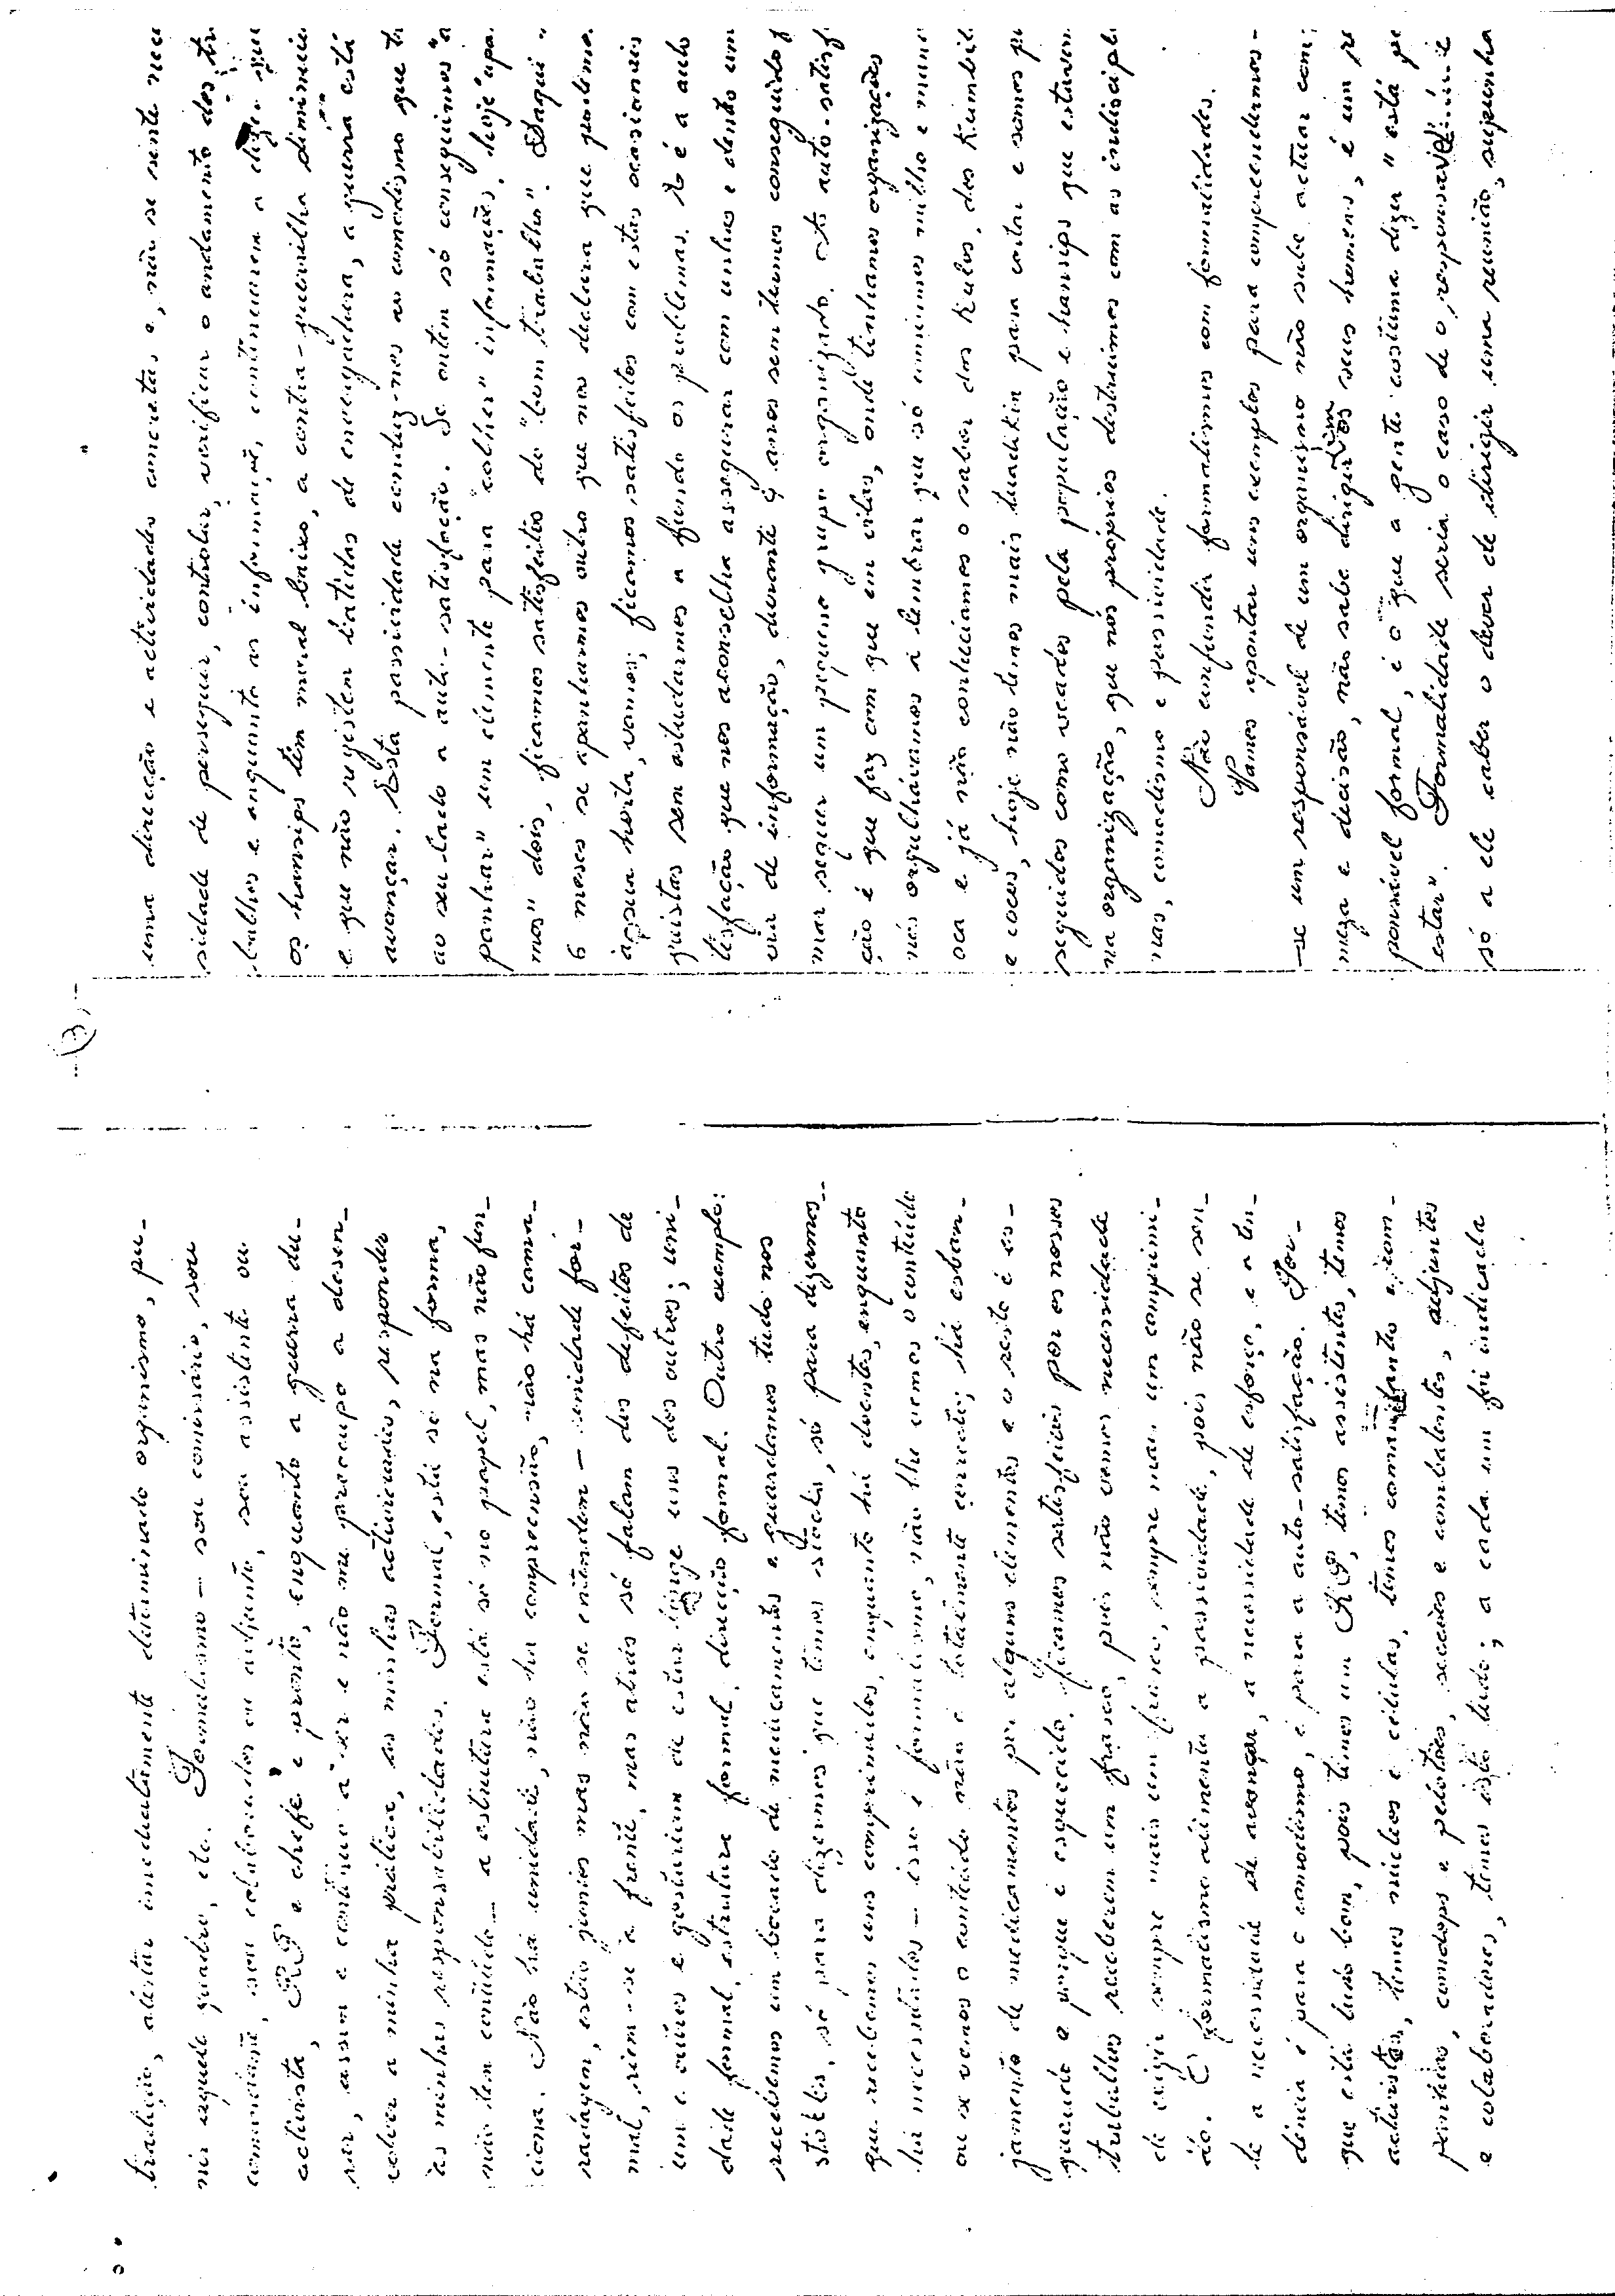 tralição, alertar imediatamente determinado organismo, pu-
nir aquele quadro, etc. Formalismo — sou comissário, sou
comandante, sou colaborador ou adjunto, sou assistente ou
activista, RP e chefe e pronto, enquanto a guerra du-
rar, assim e continuo a ser e não me preocupo a desen-
volver a minha prática, as minhas actividades, responder
às minhas responsabilidades. Formal, está só na forma,
não tem conteúdo — a estrutura está só no papel, mas não fun-
ciona. Não há unidade, não há compreensão, não há cama-
radagem, estão juntos mas não se entendem — unidade for-
mal, riem-se à frente, mas atrás só falam dos defeitos de
um e outros e gostariam de estar longe uns dos outros; uni-
dade formal, estrutura formal, direcção formal. Outro exemplo:
recebemos um bocado de medicamentos e guardamos tudo nos
stocks, só para dizermos que temos stocks, só para dizermos
que recebemos uns comprimidos, enquanto há doentes, enquanto
há necessitados — isso é formalismo, não lhe vemos o conteúdo
ou se vemos o conteúdo não é totalmente correcto; há esban-
jamento de medicamentos por alguns elementos e o resto é es-
quecido e porque é esquecido, ficamos satisfeitos por os nossos
trabalhos receberem um frasco, pois não vemos necessidade
de exigir sempre mais um frasco, sempre mais um comprimi-
do. O formalismo alimenta a passividade, pois não se sen-
te a necessidade de avançar, a necessidade de esforço, e a ten-
dência é para o comodismo, é para a auto-satisfação. Por-
que está tudo bom, pois temos um RP, temos assistentes, temos
activistas, temos núcleos e células, temos comandantes e com-
panhias, comdops e pelotões, secções e combatentes, adjuntos
e colaboradores, temos isto tudo; a cada um foi indicada
(3)
uma direcção e actividades concretas e, não se sente nec
sidade de perseguir, controlar, verificar o andamento dos tra
balhos e enquanto as informaçõ, continuarem a dizer que
os transips têm moral baixo, a contra-guerrilha diminuiu
e que não registem batidas de envergadura, a guerra está
avançar. Esta passividade conduz-nos ao comodismo que te
ao seu lado a auto-satisfação. Se ontem só conseguimos "a
panhar" um elemento para "colher" informações, hoje "apa
mos" dois, ficamos satisfeitos do "bom trabalho". Daqui a
6 meses se apanharmos outro que nos declara que podemos
apanhar, vamos, ficamos satisfeitos com estas ocasionais
sem estudarmos a fundo os problemas. É a auto
tisfação que nos aconselha assegurar com unhas e dentes um
via de informação, durante 4 anos sem termos conseguido f
mar sequer um pequeno grupo organizado. A auto-satisf
ção é que faz com que em vilas, onde tínhamos organizações
nós orgulhávamos a lembrar que só comíamos milho e man
oca e já não conhecíamos o sabor dos kulos, dos kumbili
e cocos, hoje não temos mais para voltar e somos pe
seguidos como veados pela população e transips que estavam
na organização, que nós próprios destruímos com as indiscipli
nas, comodismo e passividade.
Não confundir formalismo com formalidades.
Vamos apontar uns exemplos para compreendermos -
— se um responsável de um organismo não sabe actuar com
meza e decisão, não sabe dirigir bem os seus homens, é um re
ponsável formal, é o que a gente costuma dizer "está por
estar". Formalidade seria o caso de o responsável
só a ele caber o dever de dirigir uma reunião, suponha